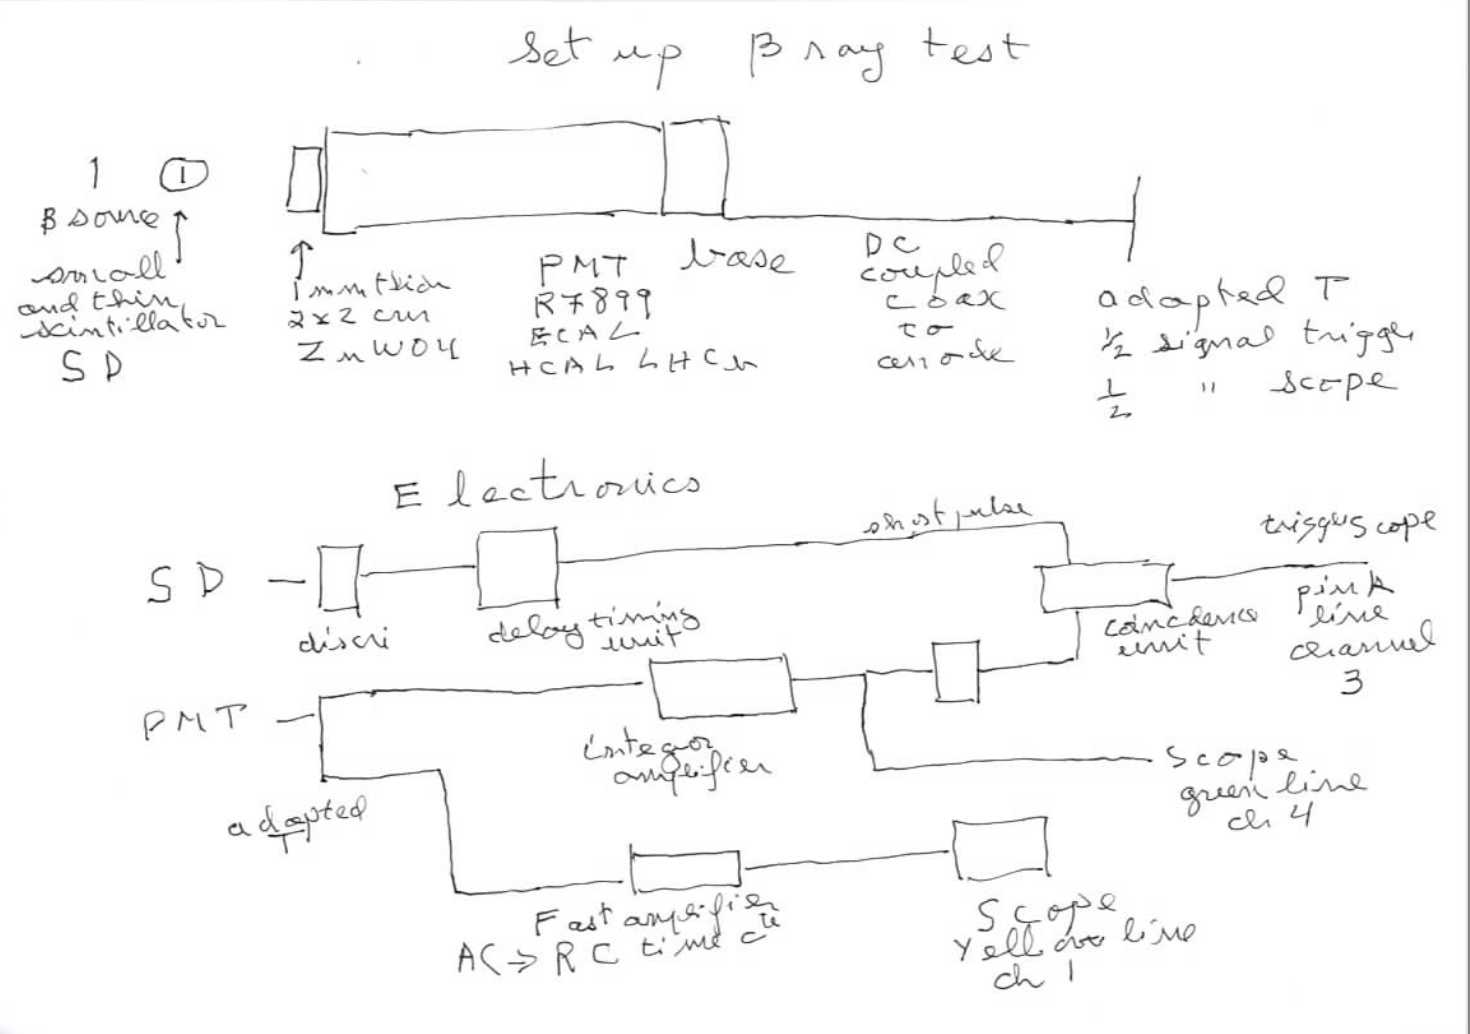 Set up β ray test
1 1
β source
small
and thin
scintillator
SD
1 mm thick
2x2 cm
ZnWO4
PMT
R7899
ECAL
HCAL LHCb
base
DC
coupled
coax
to
anode
adapted T
1/2 signal trigger
1/2 " scope
Electronics
SD
discri
delay timing
unit
short pulse
coincidence
unit
trigger scope
pink
line
channel
3
PMT
adapted
T
integr
amplifier
scope
green line
ch 4
Fast amplifier
AC => RC time cte
Scope
Yellow line
ch 1